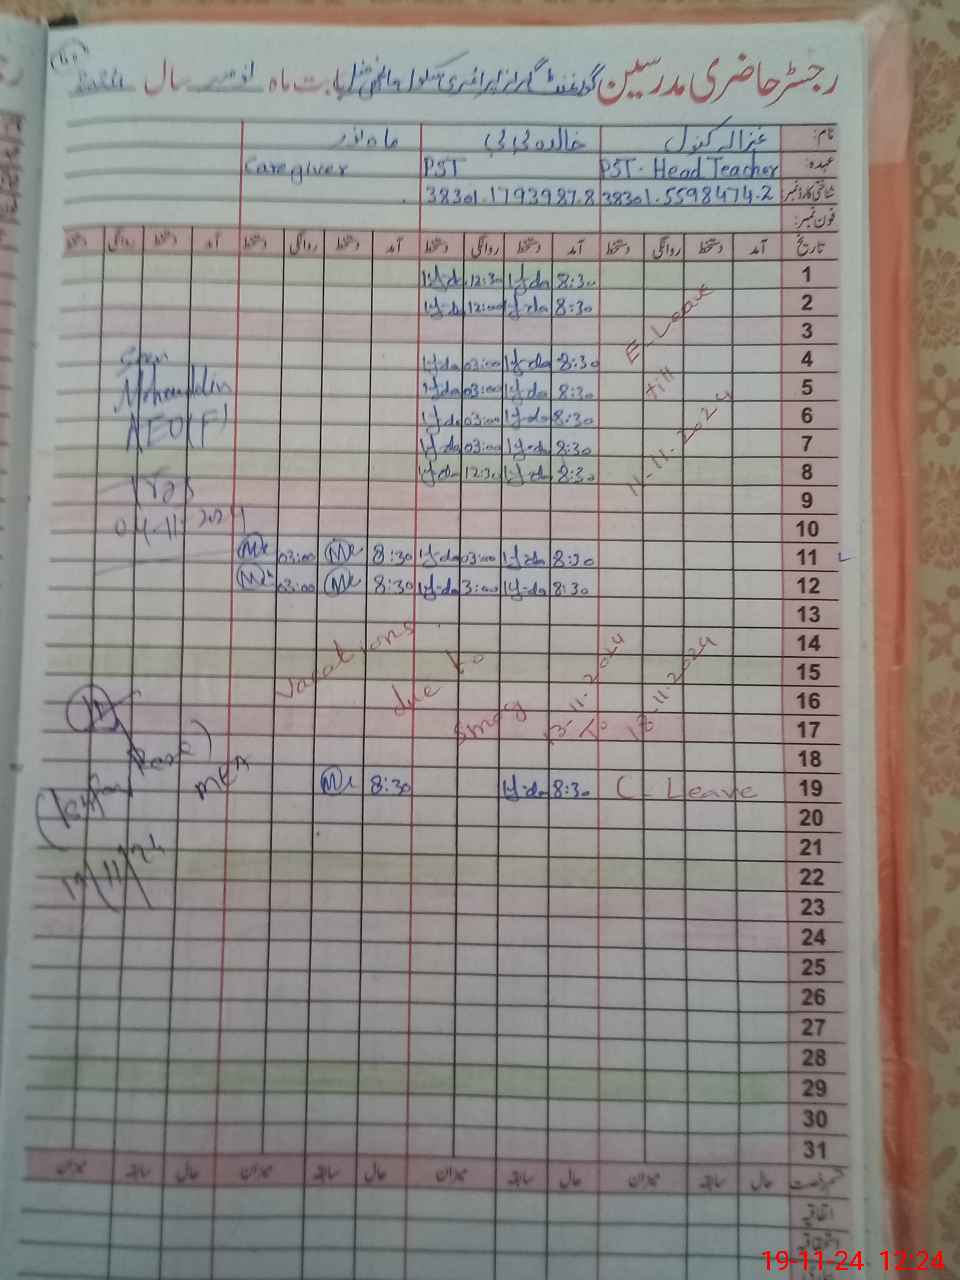 رجسٹر حاضری مدرسین گورنمنٹ گرلز پرائمری سکول بابت ماہ نومبر سال 2024
نام: غزالہ کنول خالدہ بی بی ماہ نور
عہدہ: PST - Head Teacher PST Caregiver
شناختی کارڈ نمبر 38301.5598474.2 38301.1793987.8
فون نمبر:
تاریخ آمد دستخط روانگی دستخط آمد دستخط روانگی دستخط آمد دستخط روانگی دستخط آمد دستخط روانگی دستخط
1 8:30 12:30
2 8:30 12:00
3
4 8:30 03:00
5 8:30 03:00
6 8:30 03:00
7 8:30 03:00
8 8:30 12:30
9
10
11 8:30 03:00 8:30 03:00
12 8:30 3:00 8:30 03:00
13
14
15
16
17
18
19 C. Leave 8:30 8:30
20
21
22
23
24
25
26
27
28
29
30
31
E-Leave
till
11-11-2024
Vacations due to smog 13-11-2024 To 18-11-2024
AEO(F)
04-11-2024
MEA
19/11/24
حال سابقہ میزان حال سابقہ میزان حال سابقہ میزان حال سابقہ میزان
اتفاقیہ
19-11-24 12:24